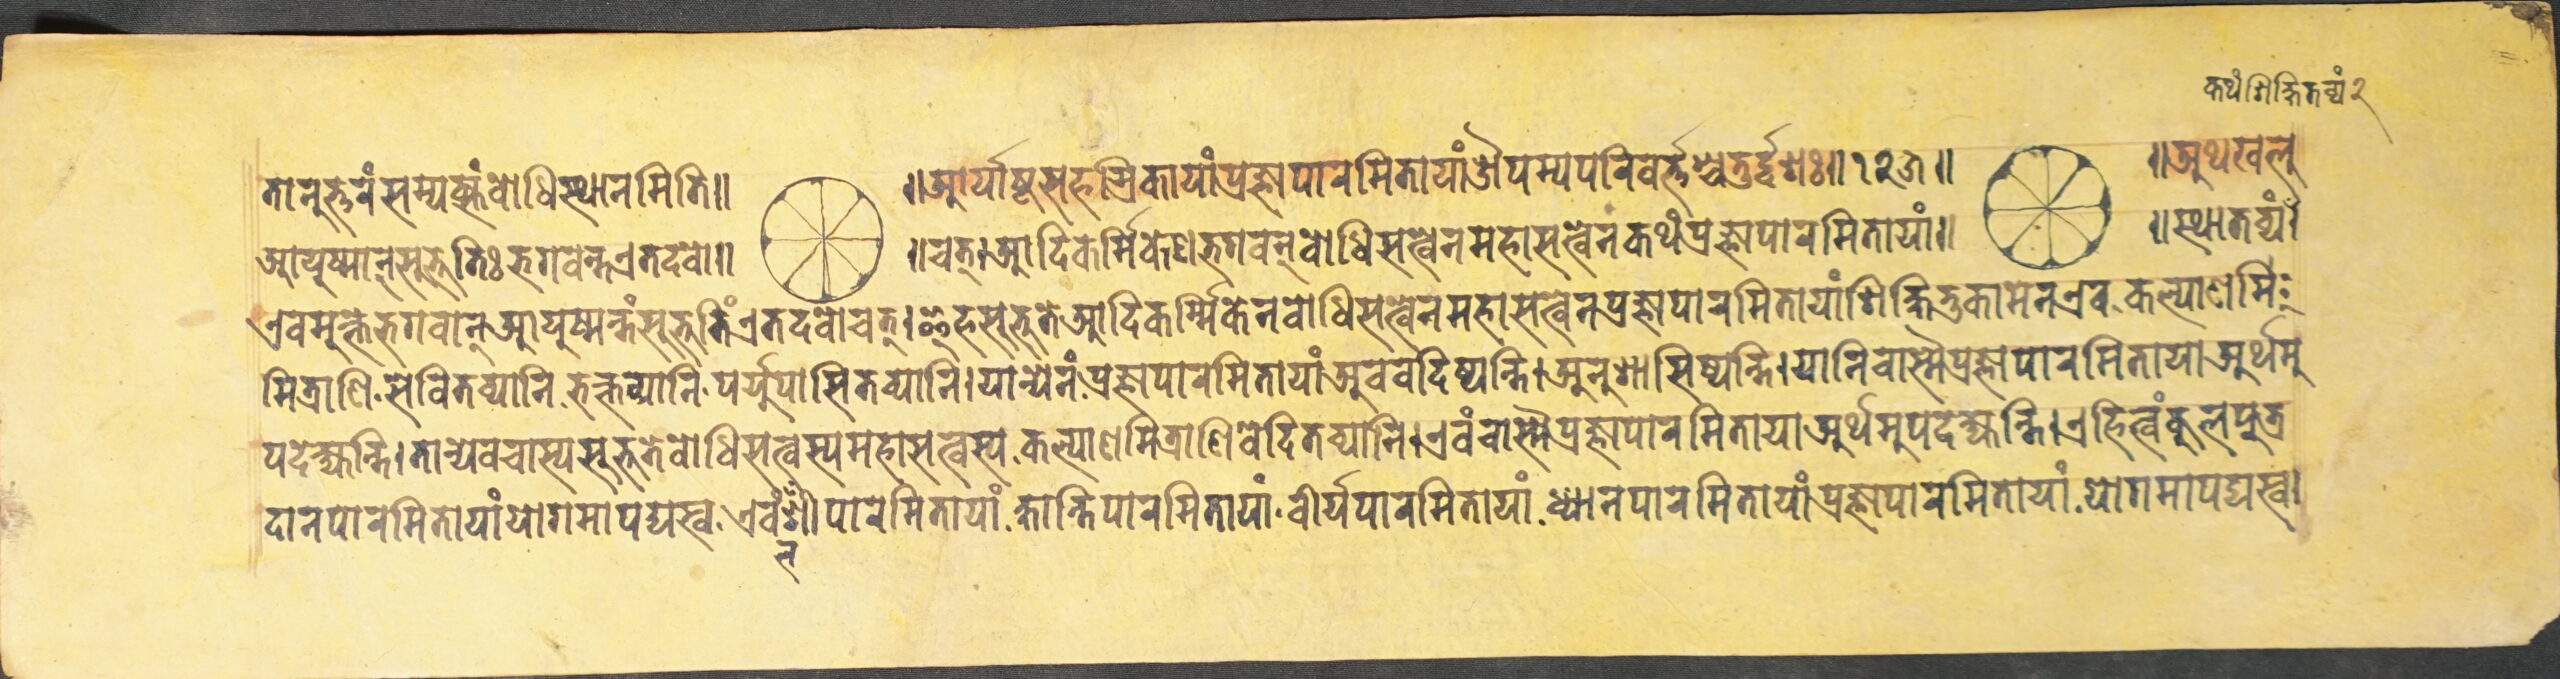 कथं शिक्षितव्यं २
तानुत्तरं सम्यक्संबोधिस्थानमिति ॥ ॥ आर्याष्टसहस्रिकायां प्रज्ञापारमितायां औपम्यपरिवर्त्तश्चतुर्द्दशः ॥ ॥ अथ खलु
आयुष्मान् सुभूतिः भगवन्त एतदवो ॥ ॥ चत् । आदिकर्मिकेण भगवन् बोधिसत्त्वेन महासत्त्वेन कथं प्रज्ञापारमितायां ॥ ॥ स्थातव्यं ।
एवमुक्ते भगवान् आयुष्मन्तं सुभूतिं एतदवोचत् । इह सुभूते आदिकर्म्मिकेन बोधिसत्त्वेन महासत्त्वेन प्रज्ञापारमितायां शिक्षितुकामेन एव कल्याणमि
मित्राणि सेवितव्यानि भक्तव्यानि पर्युपासितव्यानि । यान्येनं प्रज्ञापारमितायां अववदिष्यन्ति । अनुशासिष्यन्ति । यानि वास्मै प्रज्ञापारमिताया अर्थमु
पदेक्ष्यन्ति । तान्येव चास्य सुभूते बोधिसत्त्वस्य महासत्त्वस्य कल्याणमित्राणि वेदितव्यानि । एवं चास्मै प्रज्ञापारमिताया अर्थमुपदेक्ष्यन्ति । एहि त्वं कुलपुत्र
दानपारमितायां योगमापद्यस्व एवं शीपारमितायां क्षान्तिपारमितायां वीर्यपारमितायां ध्यानपारमितायां प्रज्ञापारमितायां योगमापद्यस्व ।
ल